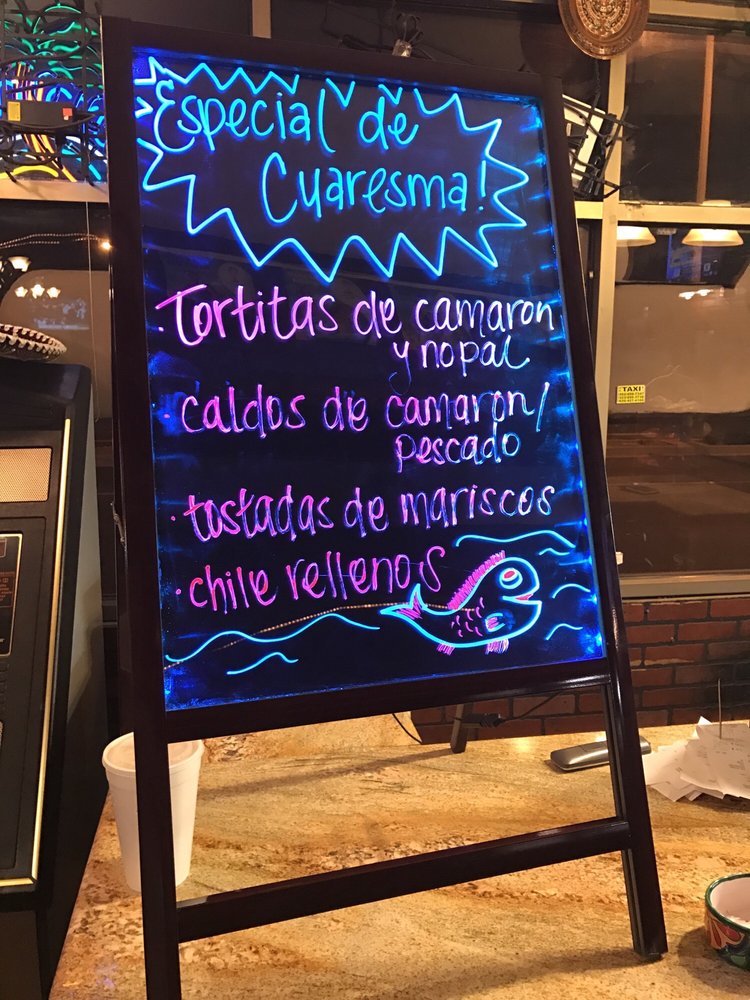 Especial de
Cuaresma!
· Tortitas de camaron
y nopal
· caldos de camaron/
pescado
· tostadas de mariscos
· chile rellenos
TAXI